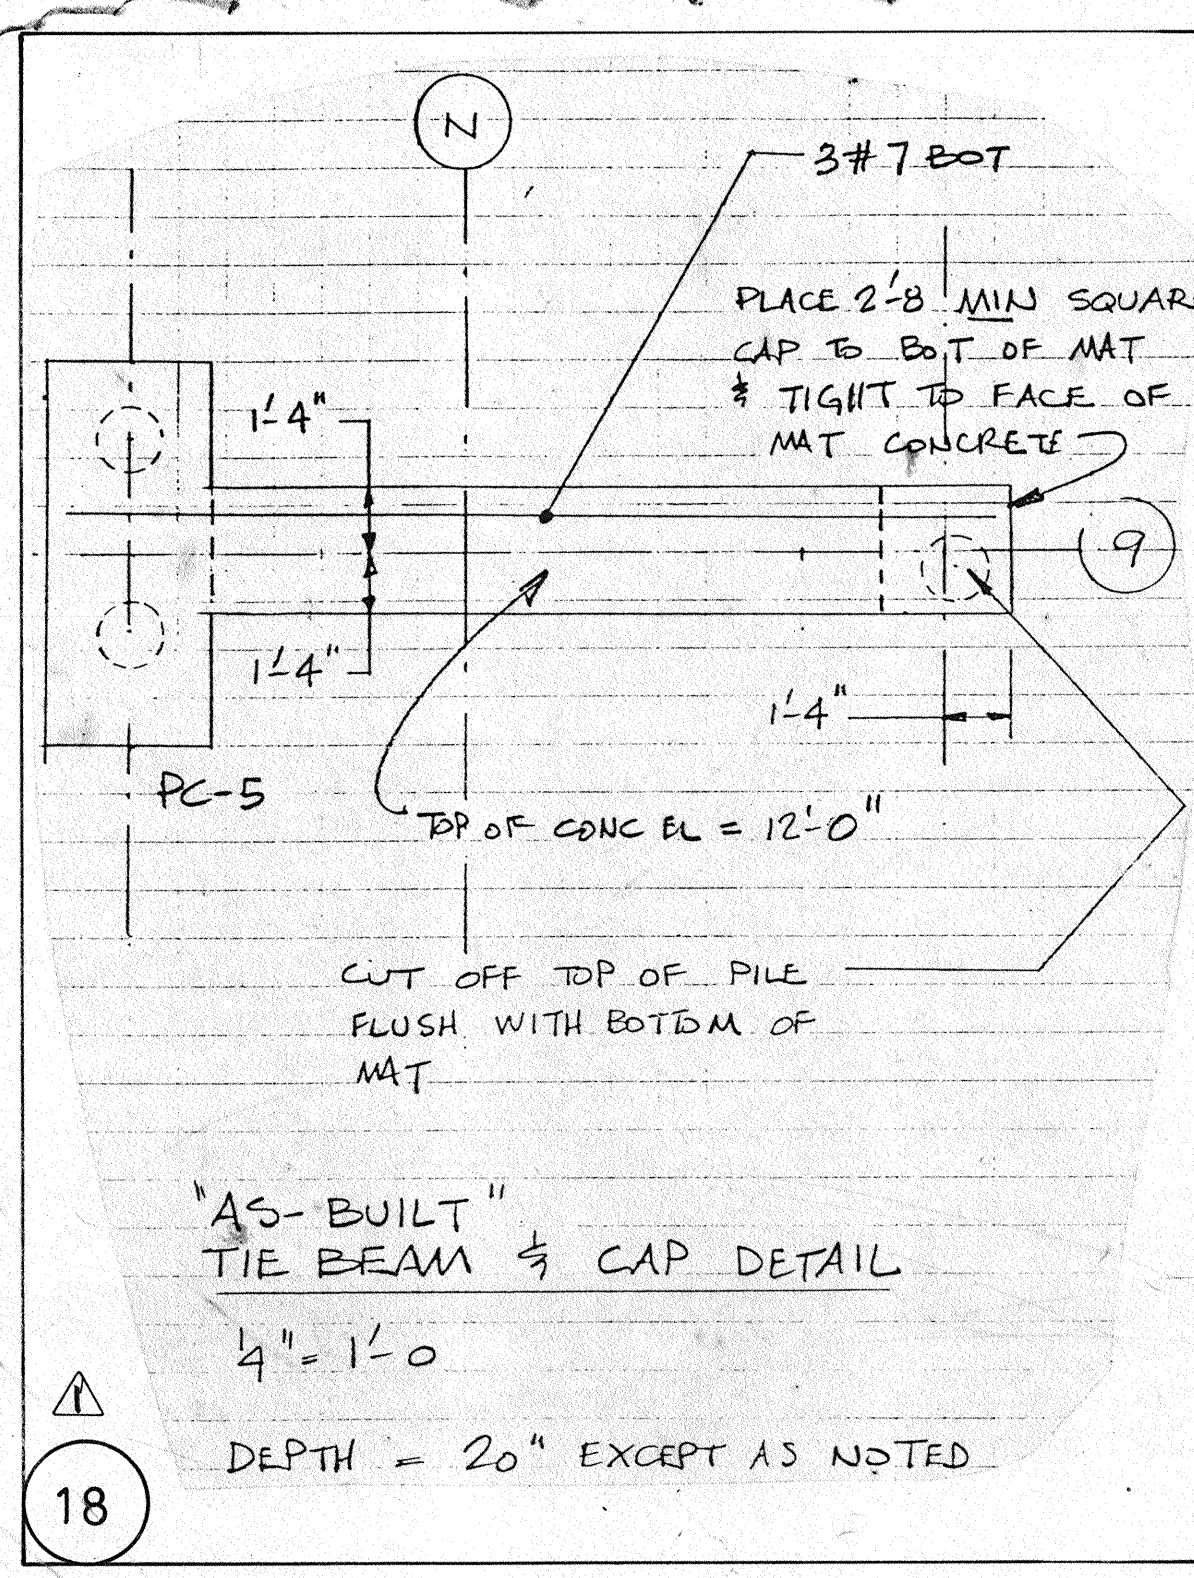 N
3#7 BOT
PLACE 2'-8 MIN SQUAR
CAP TO BOT OF MAT
& TIGHT TO FACE OF
MAT CONCRETE
1'-4"
9
1'-4"
1'-4"
PC-5
TOP OF CONC EL = 12'-0"
CUT OFF TOP OF PILE
FLUSH WITH BOTTOM OF
MAT
"AS-BUILT"
TIE BEAM & CAP DETAIL
1/4" = 1'-0
1
DEPTH = 20" EXCEPT AS NOTED
18